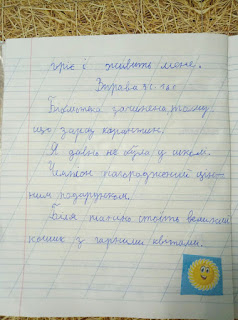 гріє і живить мене.
Вправа
Бібліотека зачинена, тому
що зараз карантин.
Я давно не була у школі.
Чемпіон нагороджений цін-
ним подарунком.
Біля піаніно стоїть великий
кошик з гарними квітами.